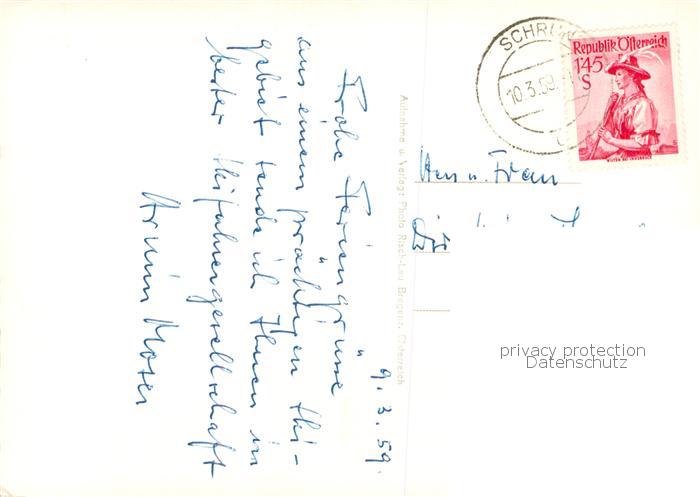 9.3.59.
Frohe Feriengrüsse
aus einem prächtigen Ski-
gebiet sende ich Ihnen in
bester Skifahrergesellschaft
Armin Moser
Aufnahme u. Verlag: Photo Risch-Lau, Bregenz, Österreich
SCHRUN
10.3.59
Republik Österreich
1'45
S
WILTEN BEI INNSBRUCK
Herrn u. Frau
privacy protection
Datenschutz